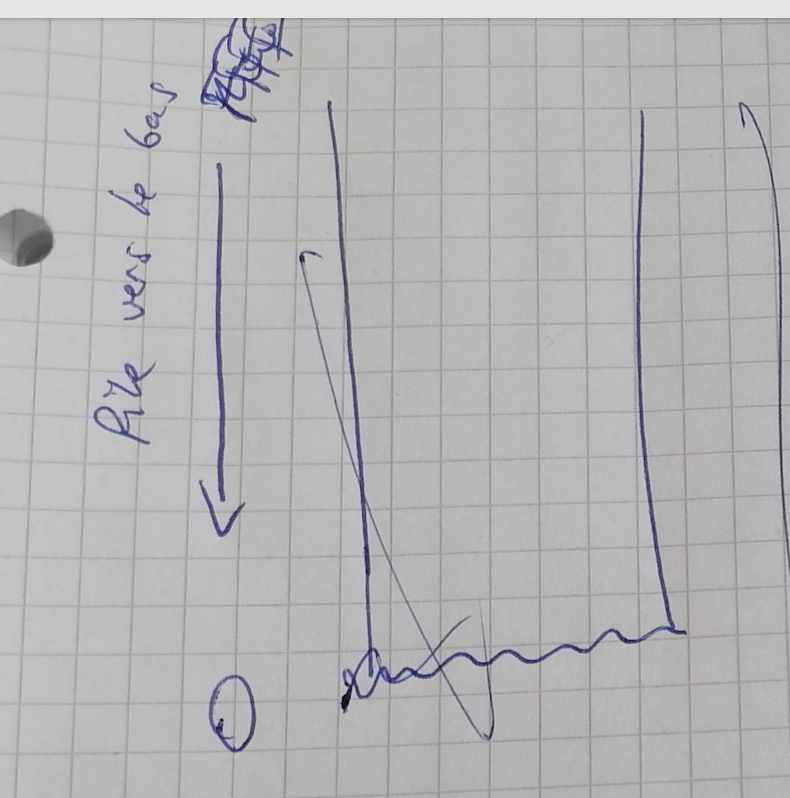 Pile vers le bas
0